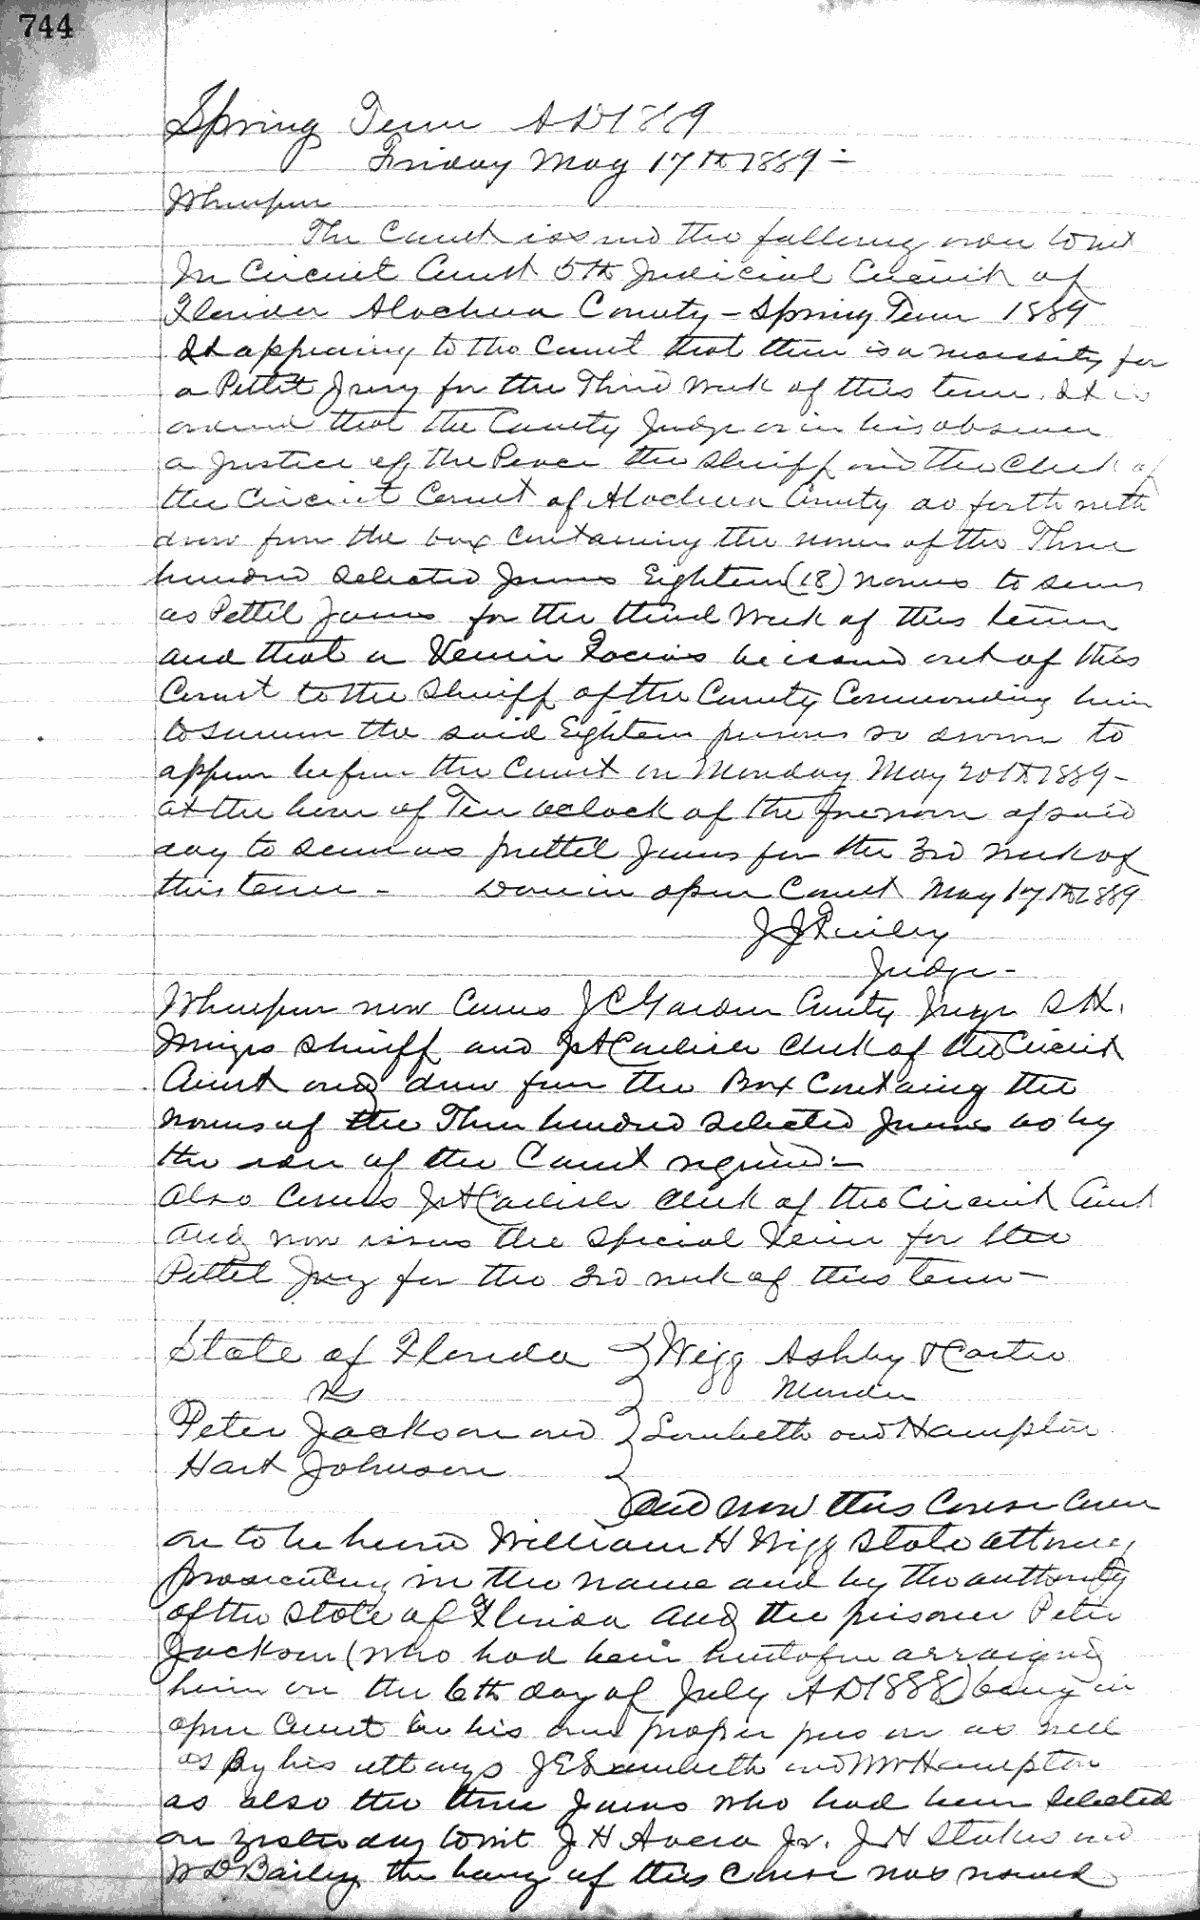 744
Spring Term AD 1889
Friday May 17th 1889 -
Whereupon
The Court issued the following order to wit
In Circuit Court 5th Judicial Circuit of
Florida Alachua County - Spring Term 1889
It appearing to the Court that there is a necessity for
a Pettit Jury for the Third week of this term. It is
ordered that the County Judge or in his absence
a Justice of the Peace the Sheriff and the Clerk of
the Circuit Court of Alachua County do forthwith
draw from the box containing the names of the Three
hundred selected Jurors Eighteen (18) names to serve
as Pettit Jurors for the third week of this term
and that a Venire Facias be issued out of this
Court to the Sheriff of the County Commanding him
to summon the said Eighteen persons so drawn to
appear before the Court on Monday May 20th 1889 -
at the hour of Ten oclock of the forenoon of said
day to serve as pettit Jurors for the 3rd week of
this term - Done in open Court May 17th 1889
J J Finley
Judge -
Whereupon now comes J C Gardner County Judge S H.
Wienges Sheriff and J A Carlisle Clerk of the Circuit
Court and draw from the Box Containg the
names of the Three hundred selected Jurors as by
the order of the Court required -
Also comes J A Carlisle Clerk of the Circuit Court
and now issues the Special Venire for the
Pettit Jury for the 3rd week of this term -
State of Florida } Wigg Ashby & Carter
vs } Murder
Peter Jackson and } Lambeth and Hampton
Hart Johnson
And now this Cause came
on to be heard William H Wigg State attorney
prosecuting in the name and by the authority
of the State of Florida and the prisoner Peter
Jackson (who had been heretofore arraigned
herein on the 6th day of July AD 1888) being in
open Court in his own proper person as well
as by his attorneys J E Lambeth and W W Hampton
as also the three Jurors who had been selected
on yesterday to wit J H Avera Jr. J H Stokes and
W D Bailey the hearing of this Cause was resumed